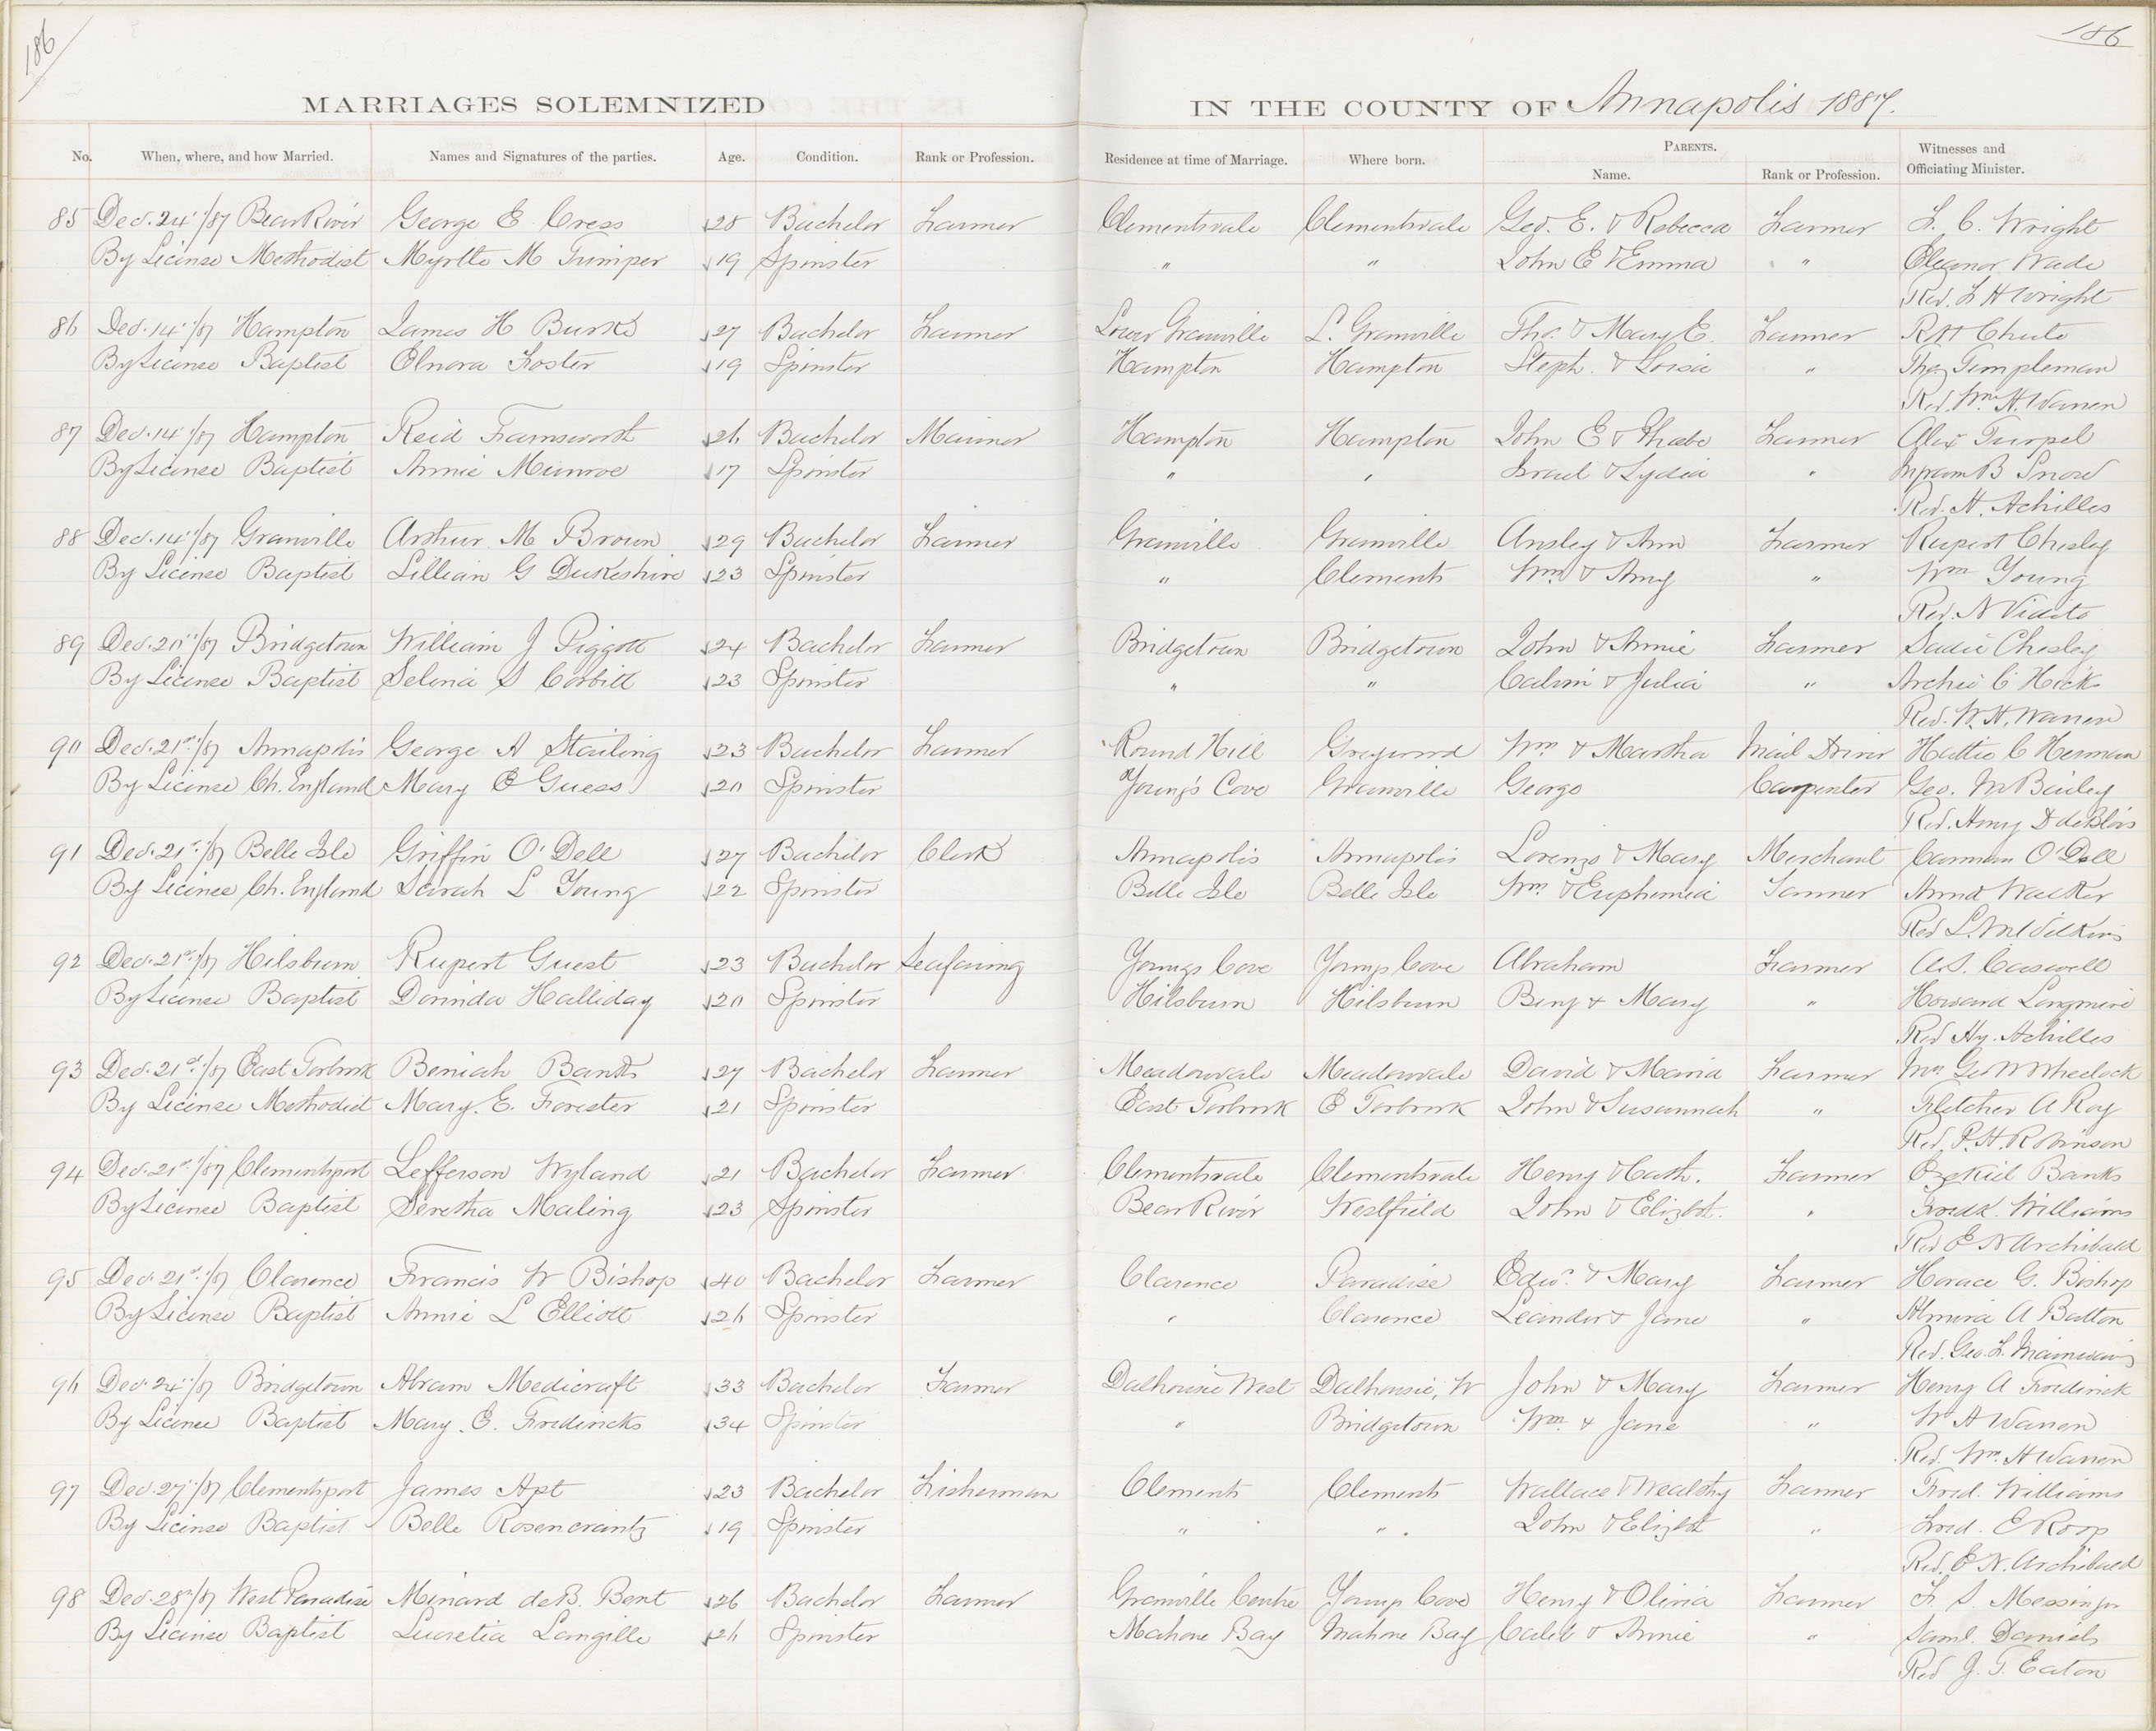 186
186
MARRIAGES SOLEMNIZED IN THE COUNTY OF Annapolis 1887.
No. When, where, and how Married. Names and Signatures of the parties. Age. Condition. Rank or Profession. Residence at time of Marriage. Where born. PARENTS. Name. Rank or Profession. Witnesses and Officiating Minister.
85 Dec. 24"/87 Bear River George E Cress 28 Bachelor Farmer Clementsvale Clementsvale Geo. E. & Rebecca Farmer F. C. Wright
By License Methodist Myrtle M Juniper 19 Spinster " " John E & Emma " Eleanor Wade
Rev. F H Wright
86 Dec. 14"/87 Hampton James H Burks 27 Bachelor Farmer Lower Granville L. Granville Tho. & Mary E. Farmer R H Chute
By License Baptist Elnora Foster 19 Spinster Hampton Hampton Steph. & Loisa " Tho. Templeman
Rev. Wm H. Warren
87 Dec. 14"/87 Hampton Reid Farnsworth 26 Bachelor Mariner Hampton Hampton John E & Phoebe Farmer Alex Turpel
By License Baptist Annie Munroe 17 Spinster " " Israel & Lydia " B Snow
Rev. H. Achilles
88 Dec. 14"/87 Granville Arthur M Brown 29 Bachelor Farmer Granville Granville Ansley & Ann Farmer Rupert Chesley
By License Baptist Lillian G Dukeshire 23 Spinster " Clements Wm & Amy " Wm Young
Rev. N Vidito
89 Dec. 20"/87 Bridgetown William J Piggott 24 Bachelor Farmer Bridgetown Bridgetown John & Annie Farmer Sadie Chesley
By License Baptist Selena S Corbitt 23 Spinster " " Calvin & Julia " Archie C Hicks
Rev. W. H. Warren
90 Dec. 21st/87 Annapolis George A Stailing 23 Bachelor Farmer Round Hill Greywood Wm & Martha Mail Driver Hattie C Herman
By License Ch. England Mary E Guess 20 Spinster Young's Cove Granville George Carpenter Geo. M Bailey
Rev. Henry D deBlois
91 Dec. 21st/87 Belle Isle Griffin O'Dell 27 Bachelor Clerk Annapolis Annapolis Lorenzo & Mary Merchant Carman O'Dell
By License Ch. England Sarah L Young 22 Spinster Belle Isle Belle Isle Wm & Euphemia Farmer Annd Walker
Rev L. M Wilkins
92 Dec. 21st/87 Hilsburn Rupert Guest 23 Bachelor Seafaring Youngs Cove Youngs Cove Abraham Farmer A. S. Caswell
By License Baptist Dorinda Halliday 20 Spinster Hilsburn Hilsburn Benj & Mary " Howard Longmire
Rev Hy. Achilles
93 Dec. 21st/87 East Torbrook Beniah Banks 27 Bachelor Farmer Meadowvale Meadowvale David & Maria Farmer Mrs Geo W Wheelock
By License Methodist Mary. E. Forester 21 Spinster East Torbrook E Torbrook John & Susannah " Fletcher A Roy
Rev. P. H. Robinson
94 Dec. 21st/87 Clementsport Lefferson Wyland 21 Bachelor Farmer Clementsvale Clementsvale Henry & Cath. Farmer Ezekiel Banks
By License Baptist Seretha Maling 23 Spinster Bear River Westfield John & Elizbt. " Fredk. Williams
Rev E N Archibald
95 Dec. 21st/87 Clarence Francis W Bishop 40 Bachelor Farmer Clarence Paradise Edwd. & Mary Farmer Horace G. Bishop
By License Baptist Annie L Elliott 26 Spinster " Clarence Leander & Jane " Almira A Balton
Rev. Geo. F. Mainwaring
96 Dec. 24"/87 Bridgetown Abram Medicraft 33 Bachelor Farmer Dalhousie West Dalhousie, W John & Mary Farmer Henry A Frederick
By License Baptist Mary. E. Fredericks 34 Spinster " Bridgetown Wm & Jane " W A Warren
Rev. Wm. H Warren
97 Dec. 27"/87 Clementsport James Apt 23 Bachelor Fisherman Clements Clements Wallace & Wealthy Farmer Fred. Williams
By License Baptist Belle Rosencrantz 19 Spinster " " John & Elizbt " Fred. E Roop
Rev. E N. Archibald
98 Dec. 28"/87 West Paradise Minard de B. Bent 26 Bachelor Farmer Granville Centre Youngs Cove Henry & Olivia Farmer F. S. Messinger
By License Baptist Lucretia Langille 26 Spinster Mahone Bay Mahone Bay Caleb & Annie " Saml. Daniels
Rev J. T. Eaton